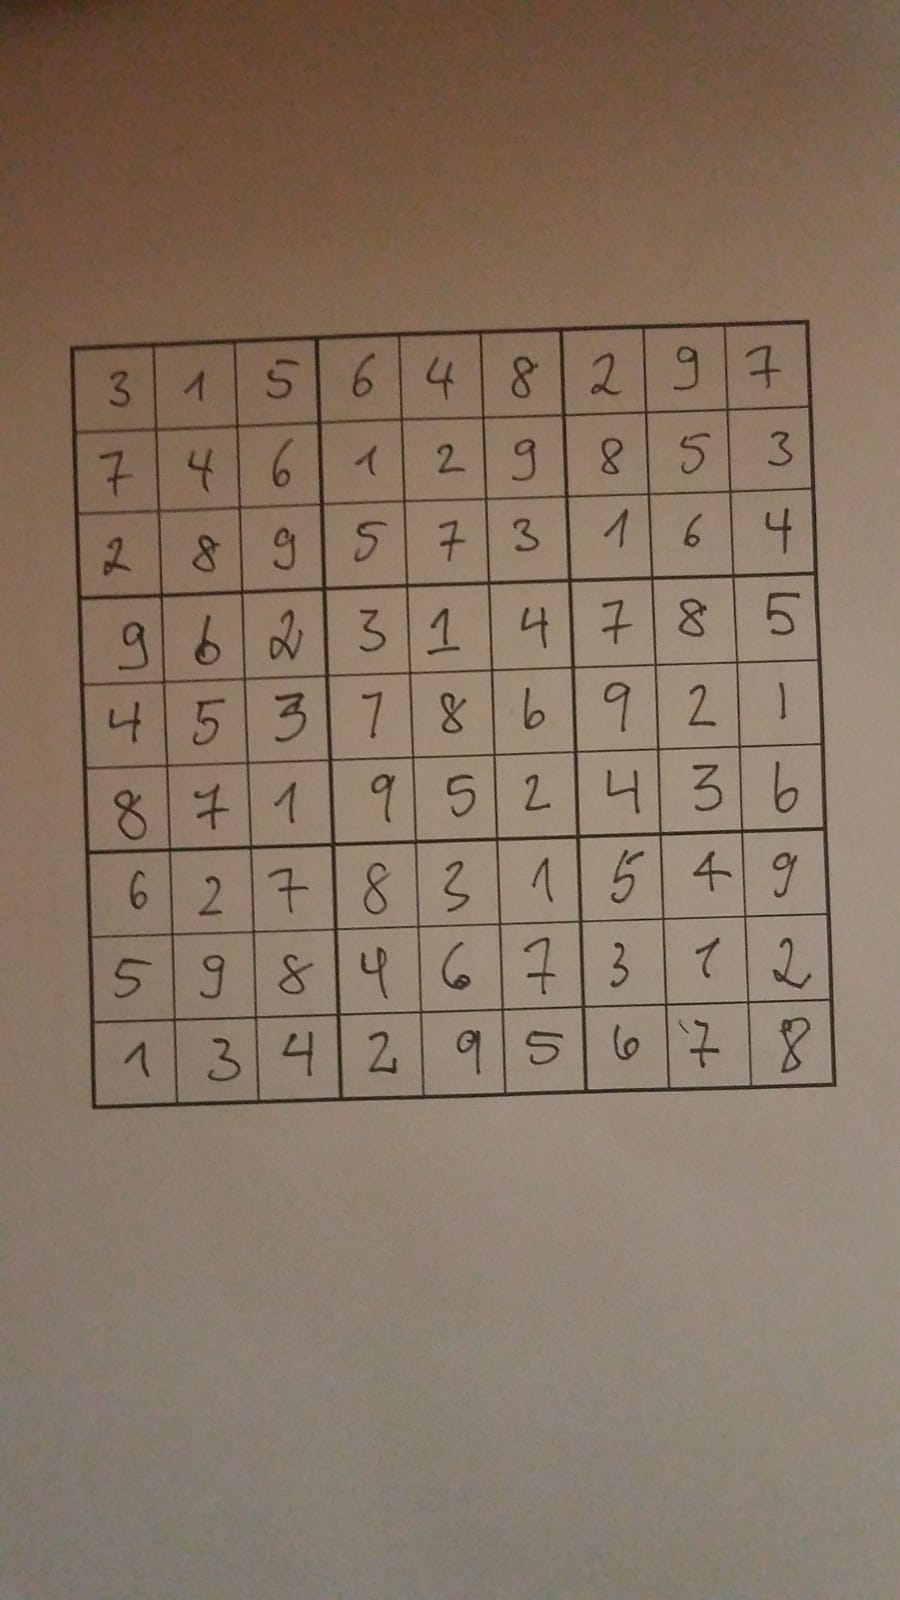 3 1 5 6 4 8 2 9 7
7 4 6 1 2 9 8 5 3
2 8 9 5 7 3 1 6 4
9 6 2 3 1 4 7 8 5
4 5 3 7 8 6 9 2 1
8 7 1 9 5 2 4 3 6
6 2 7 8 3 1 5 4 9
5 9 8 4 6 7 3 1 2
1 3 4 2 9 5 6 7 8